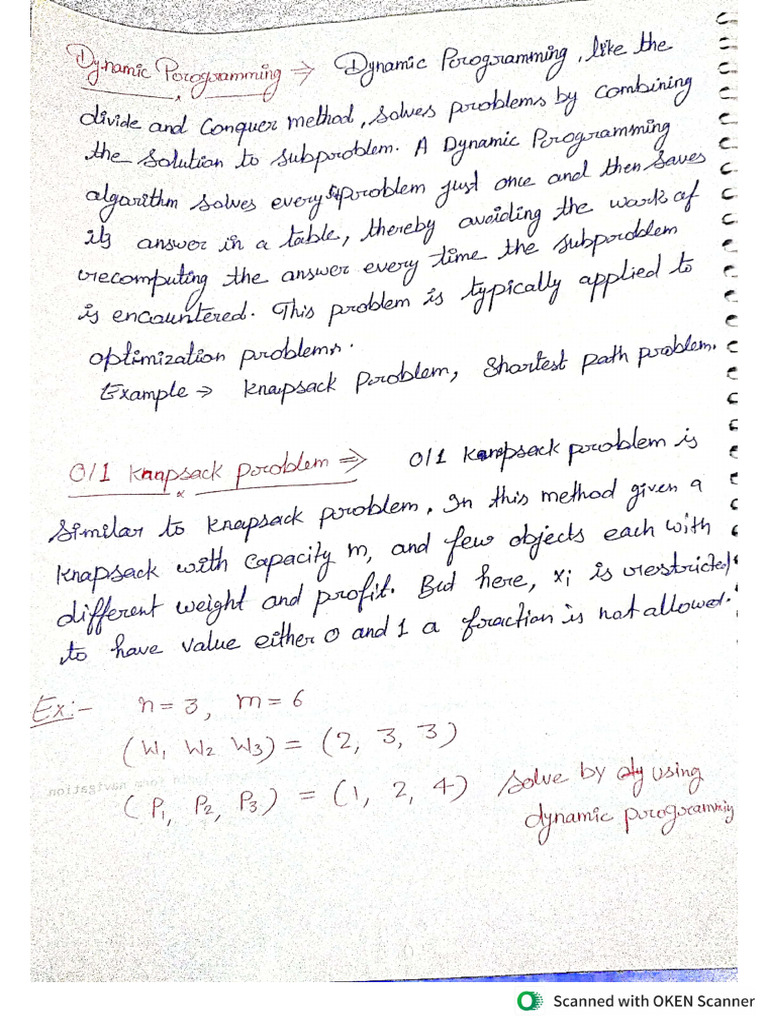 Dynamic Programming ⇒ Dynamic Programming, like the
divide and Conquer method, solves problems by combining
the solution to subproblem. A Dynamic Programming
algorithm solves every subproblem just once and then saves
its answer in a table, thereby avoiding the work of
recomputing the answer every time the subproblem
is encountered. This problem is typically applied to
optimization problems.
Example → Knapsack Problem, Shortest path problem.
0/1 Knapsack problem ⇒ 0/1 Knapsack problem is
similar to knapsack problem. In this method given a
knapsack with capacity m, and few objects each with
different weight and profit. But here, xi is restricted
to have value either 0 and 1 a fraction is not allowed.
Ex:- n=3, m=6
(W1 W2 W3) = (2, 3, 3)
(P1, P2, P3) = (1, 2, 4) Solve by using
dynamic programming
Scanned with OKEN Scanner